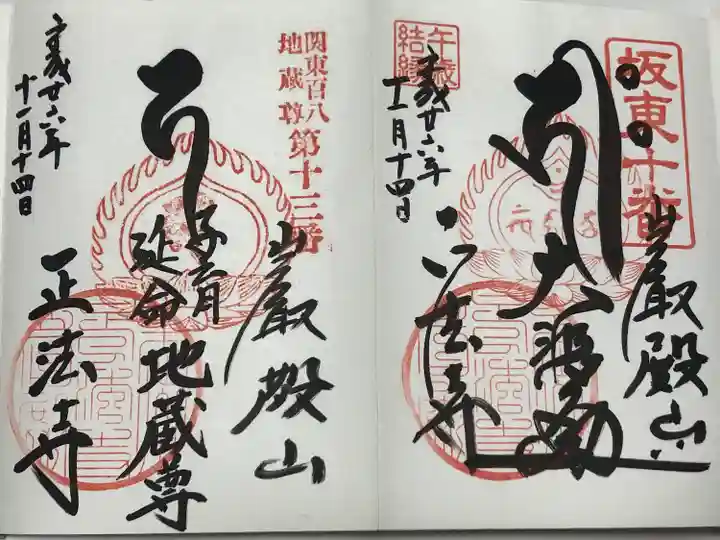 坂東十番
巌殿山
大悲閣
正法寺
午歳
結縁
廿六年
十一月十四日
関東百八
地蔵尊
第十三番
巌殿山
子育
延命
地蔵尊
正法寺
廿六年
十一月十四日